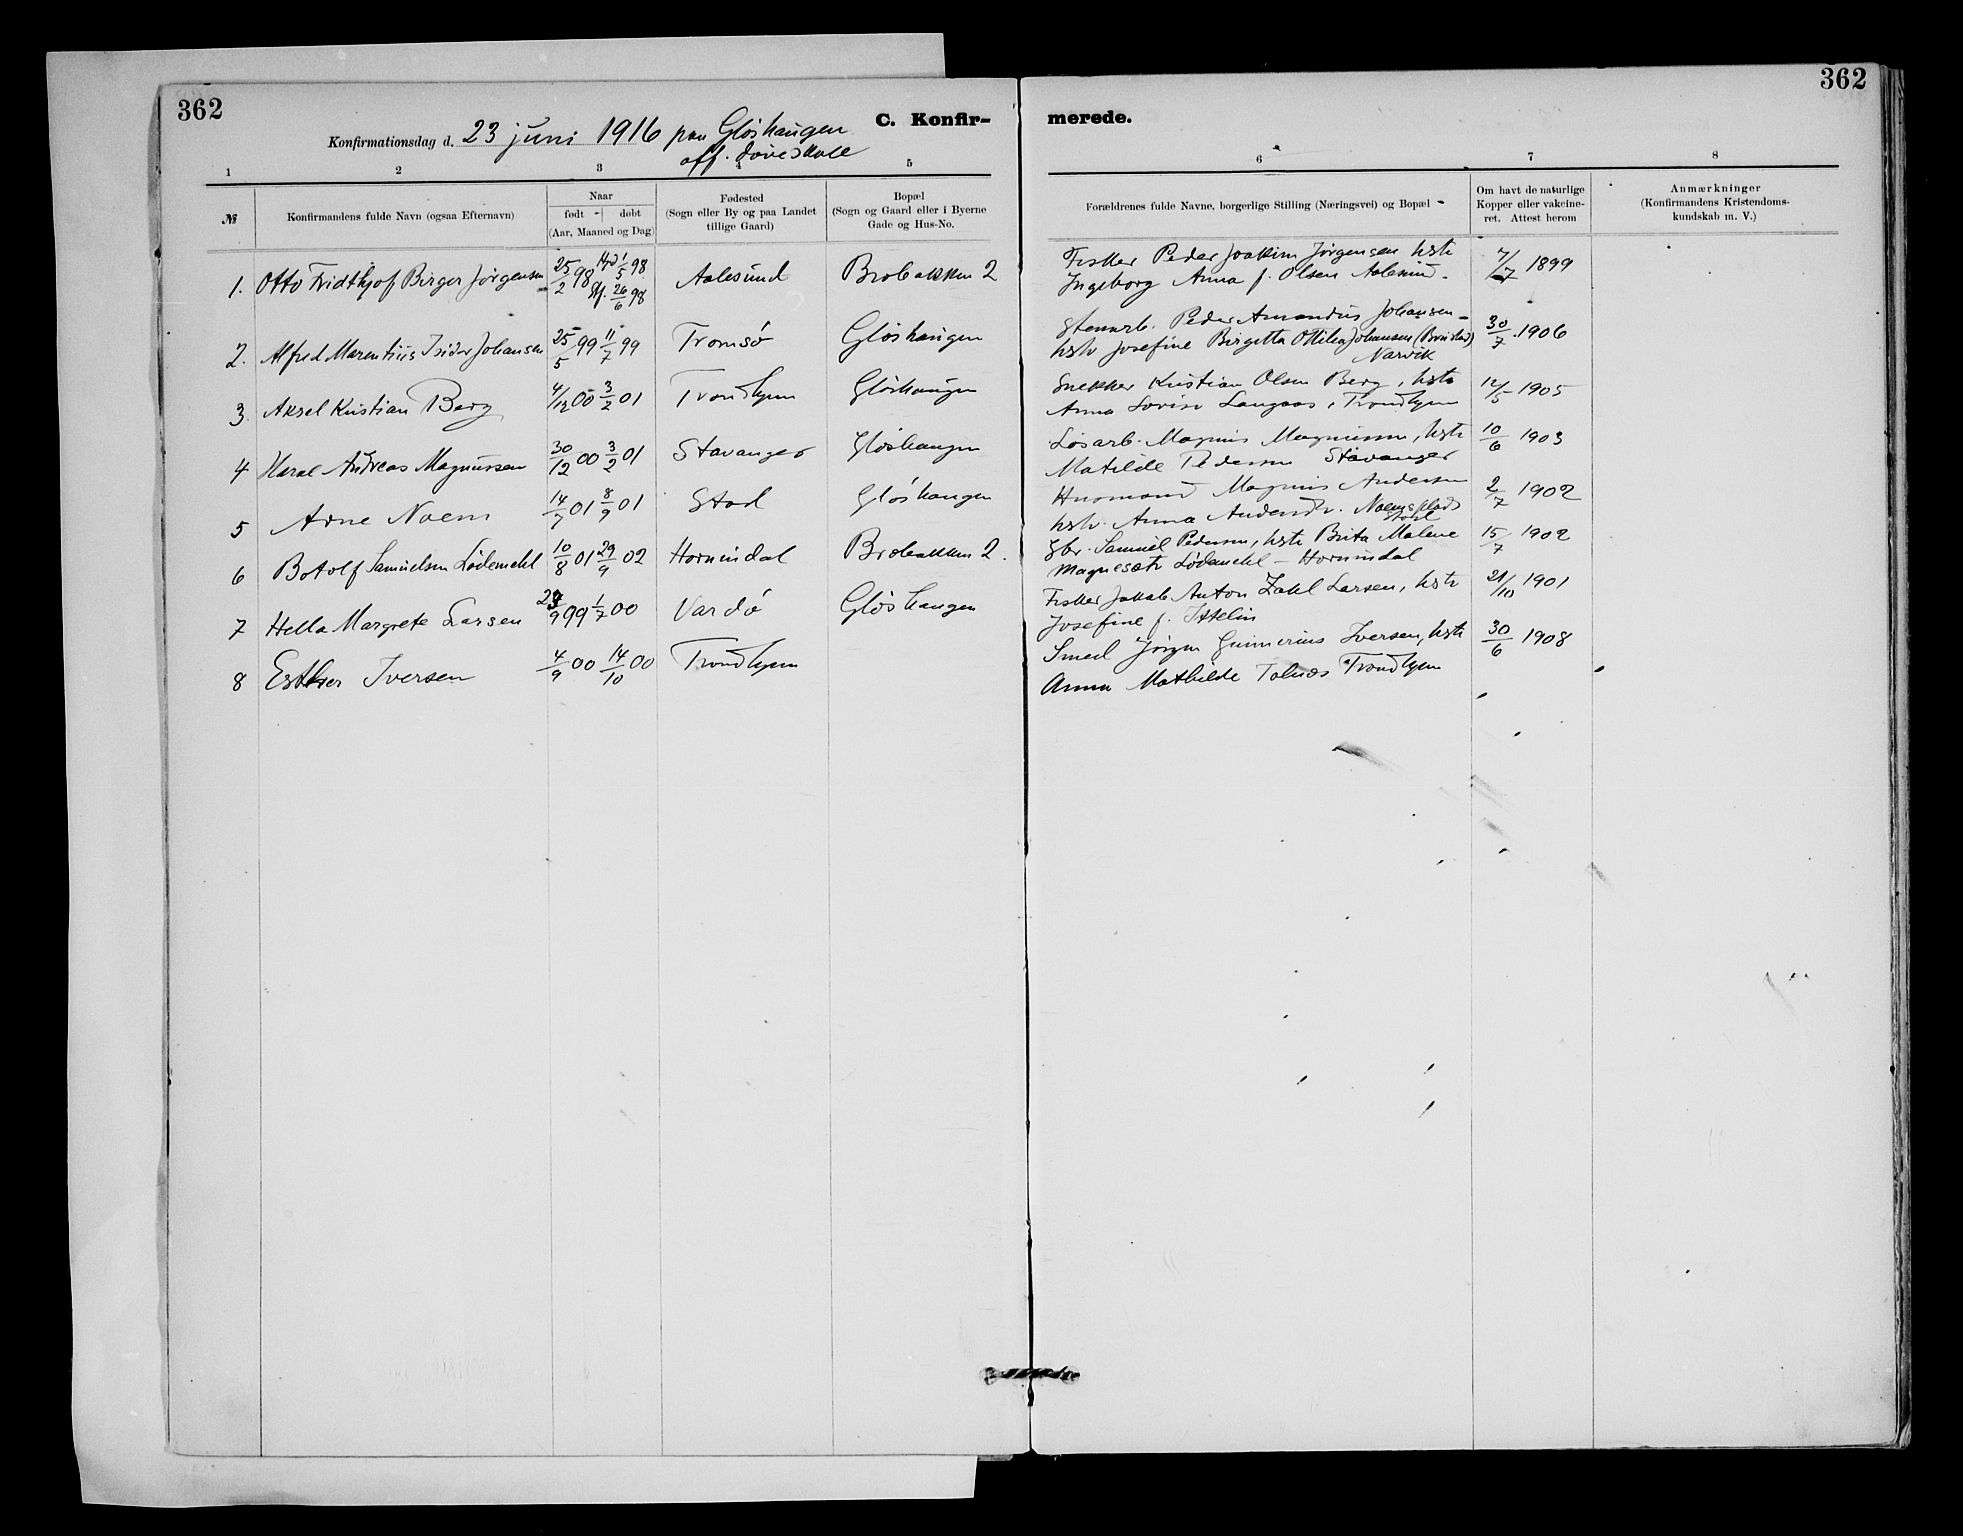 362
362
C. Konfir-
merede.
Konfirmationsdag d. 23 juni 1916 paa Gløshaugen
off. døveskole
1 2 3 4 5 6 7 8
№
Konfirmandens fulde Navn (ogsaa Efternavn)
Naar
født - døbt
(Aar, Maaned og Dag)
Fødested
(Sogn eller By og paa Landet
tillige Gaard)
Bopæl
(Sogn og Gaard eller i Byerne
Gade og Hus-No.
Forældrenes fulde Navne, borgerlige Stilling (Næringsvei) og Bopæl
Om havt de naturlige
Kopper eller vakcine-
ret. Attest herom
Anmærkninger
(Konfirmandens Kristendoms-
kundskab m. V.)
1. Otto Fridthjof Birger Jørgensen 25/2 98 Hjd 1/5 98 Aalesund Brobakken 2 Fisker Peder Joakim Jørgensen hstr 7/7 1899
26/6 98 Ingeborg Anna f. Olsen Aalesund.
2. Alfred Marentiis Isidor Johansen 25/5 99 11/7 99 Tromsø Gløshaugen Stenarb. Peder Amandus Johansen - 30/7 1906
hstr Josefine Birgitta Ottilia Johansen
Narvik
3. Aksel Kristian Berg 4/12 00 3/2 01 Trondhjem Gløshaugen Snekker Kristian Olsen Berg, hstr 12/5 1905
Anna Lovise Langaas, Trondhjem
4 Haral Andreas Magnussen 30/12 00 3/2 01 Stavanger Gløshaugen Løsarb. Magnus Magnussen, hstr 10/6 1903
Matilde Pedersen Stavanger
5 Arne Noem 14/7 01 8/9 01 Stod Gløshaugen Husmand Magnus Andersen 2/7 1902
hstr. Anna Andersdtr. Noemsplads
Stod
6 Botolf Samuelsen Lødemehl 10/8 01 29/9 02 Hornindal Brobakken 2. Gbr. Samuel Pedersen, hstr Brita Malene 15/7 1902
Magnesætr Lødemehl - Hornindal
7 Hella Margrete Larsen 99 1/7 00 Vardø Gløshaugen Fisker Jakob Anton Larsen, hstr 21/10 1901
Josefine f.
8 Esther Iversen 4/9 00 14/10 00 Trondhjem Smed Jørgen Gunnerius Iversen, hstr 30/6 1908
Anna Mathilde Tolnæs Trondhjem